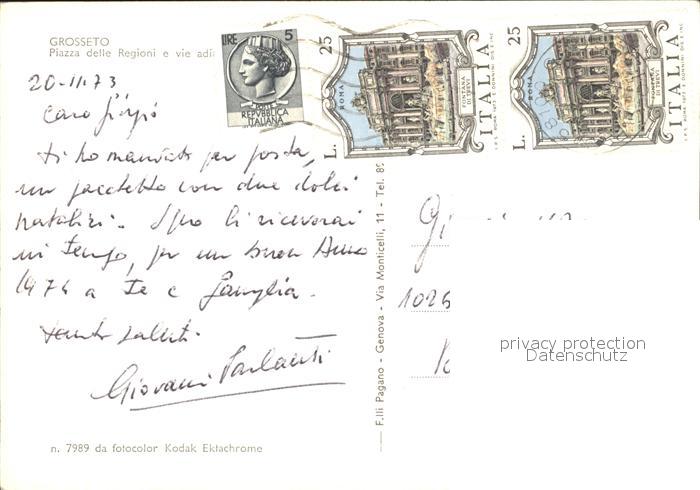 GROSSETO
Piazza delle Regioni e vie adi
20-11-73
Caro Giorgio
ti ho mandato per posta,
un pacchetto con due dolci
natalizi. Spero li riceverai
in tempo, per un buon Anno
1974 a te e famiglia.
tanti saluti.
Giovanni Parlanti
n. 7989 da fotocolor Kodak Ektachrome
F.lli Pagano - Genova - Via Monticelli, 11 - Tel. 89
LIRE 5
REPVBBLICA
ITALIANA
L. 25
ROMA
FONTANA
DI TREVI
ITALIA
L. 25
ROMA
FONTANA
DI TREVI
ITALIA
1026
privacy protection
Datenschutz